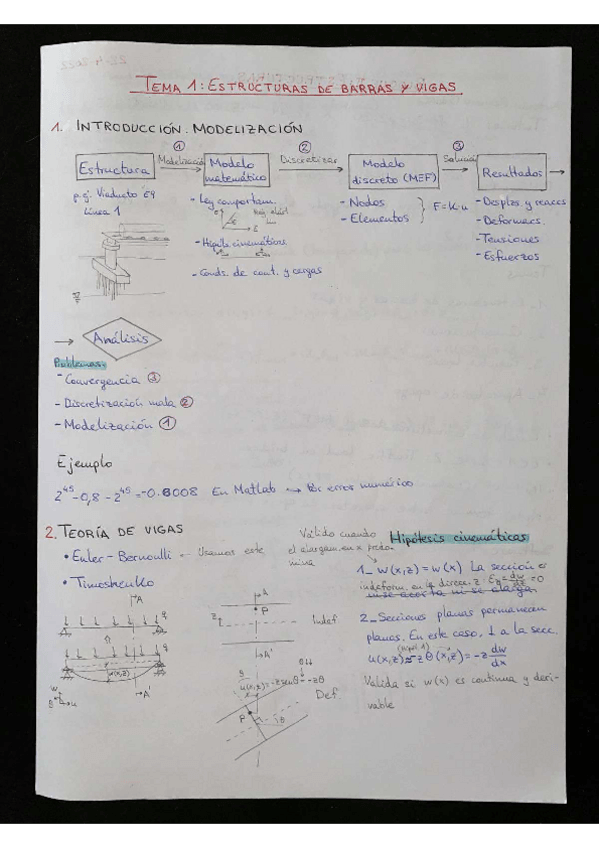 22-4-2022
TEMA 1: ESTRUCTURAS DE BARRAS Y VIGAS
1. INTRODUCCIÓN. MODELIZACIÓN
① ② ③
Estructura Modelización Modelo matemático Discretizar Modelo discreto (MEF) Solución Resultados
p.ej. Viaducto E9
Línea 1
- Ley comportam.
- Hipót. cinemáticas
- Conds. de cont. y cargas
- Nodos
- Elementos
F=K·u
- Desplaz y reacc
- Deformacs.
- Tensiones
- Esfuerzos
Análisis
Problemas:
- Convergencia ③
- Discretización mala ②
- Modelización ①
Ejemplo
2^45 - 0,8 - 2^45 = -0.8008 En Matlab → Por error numérico
2. TEORÍA DE VIGAS
• Euler-Bernoulli ← Usamos este
• Timoshenko
Válido cuando
el alargam. en x predo-
mina
Hipótesis cinemáticas
1_ w(x,z) = w(x) La sección es
indeform. en la direcc. z
no se acorta ni se alarga
2_ Secciones planas permanecen
planas. En este caso, ⊥ a la secc.
u(x,z) ≈ -zθ(x,z) = -z dw/dx
Valida si w(x) es continua y deri-
vable
A
A'
q
A
A'
q
w(x,z)
w
u
A
P
z
Indef
A'
θ↓↓
u(x,z) = -z senθ ≈ -zθ
P
θ
Def.